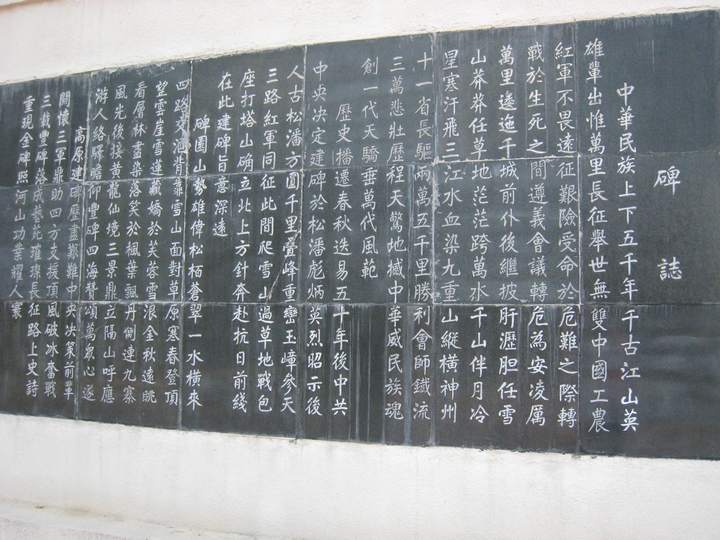 碑誌
中華民族上下五千年千古江山英
雄輩出惟萬里長征舉世無雙中國工農
紅軍不畏遠征艱險受命於危難之際轉
戰於生死之間遵義會議轉危為安凌厲
萬里逶迤千城前仆後繼披肝瀝胆任雪
山莽莽任草地茫茫跨萬水千山伴月冷
星寒汗飛三江水血染九重山縱橫神州
十一省長驅兩萬五千里勝利會師鐵流
三萬悲壯歷程天驚地撼中華威民族魂
創一代天驕垂萬代風範
歷史播遷春秋迭易五十年後中共
中央決定建碑於松潘彪炳英烈昭示後
人古松潘方圓千里叠峰重巒玉嶂參天
三路紅軍同征此間爬雪山過草地戰包
座打塔山确立北上方針奔赴抗日前綫
在此建碑旨意深遠
碑園山勢雄偉松栢蒼翠一水橫來
四路交滙背靠雪山面對草原寒春登頂
望雲崖雪蓮藏嬌於芙蓉雪浪金秋遠眺
看層林盡染落笑於楓葉飄丹側連九寨
風光後接黄龍仙境三景鼎立隔山呼應
游人絡驛瞻仰豐碑四海贊頌萬衆心遂
高原建碑歷盡艱難中央決策前輩
關懷三軍鼎助四方支援頂風破冰奮戰
三載豐碑落成藝苑璀璨長征路上史詩
重現金碑照河山功業耀人寰